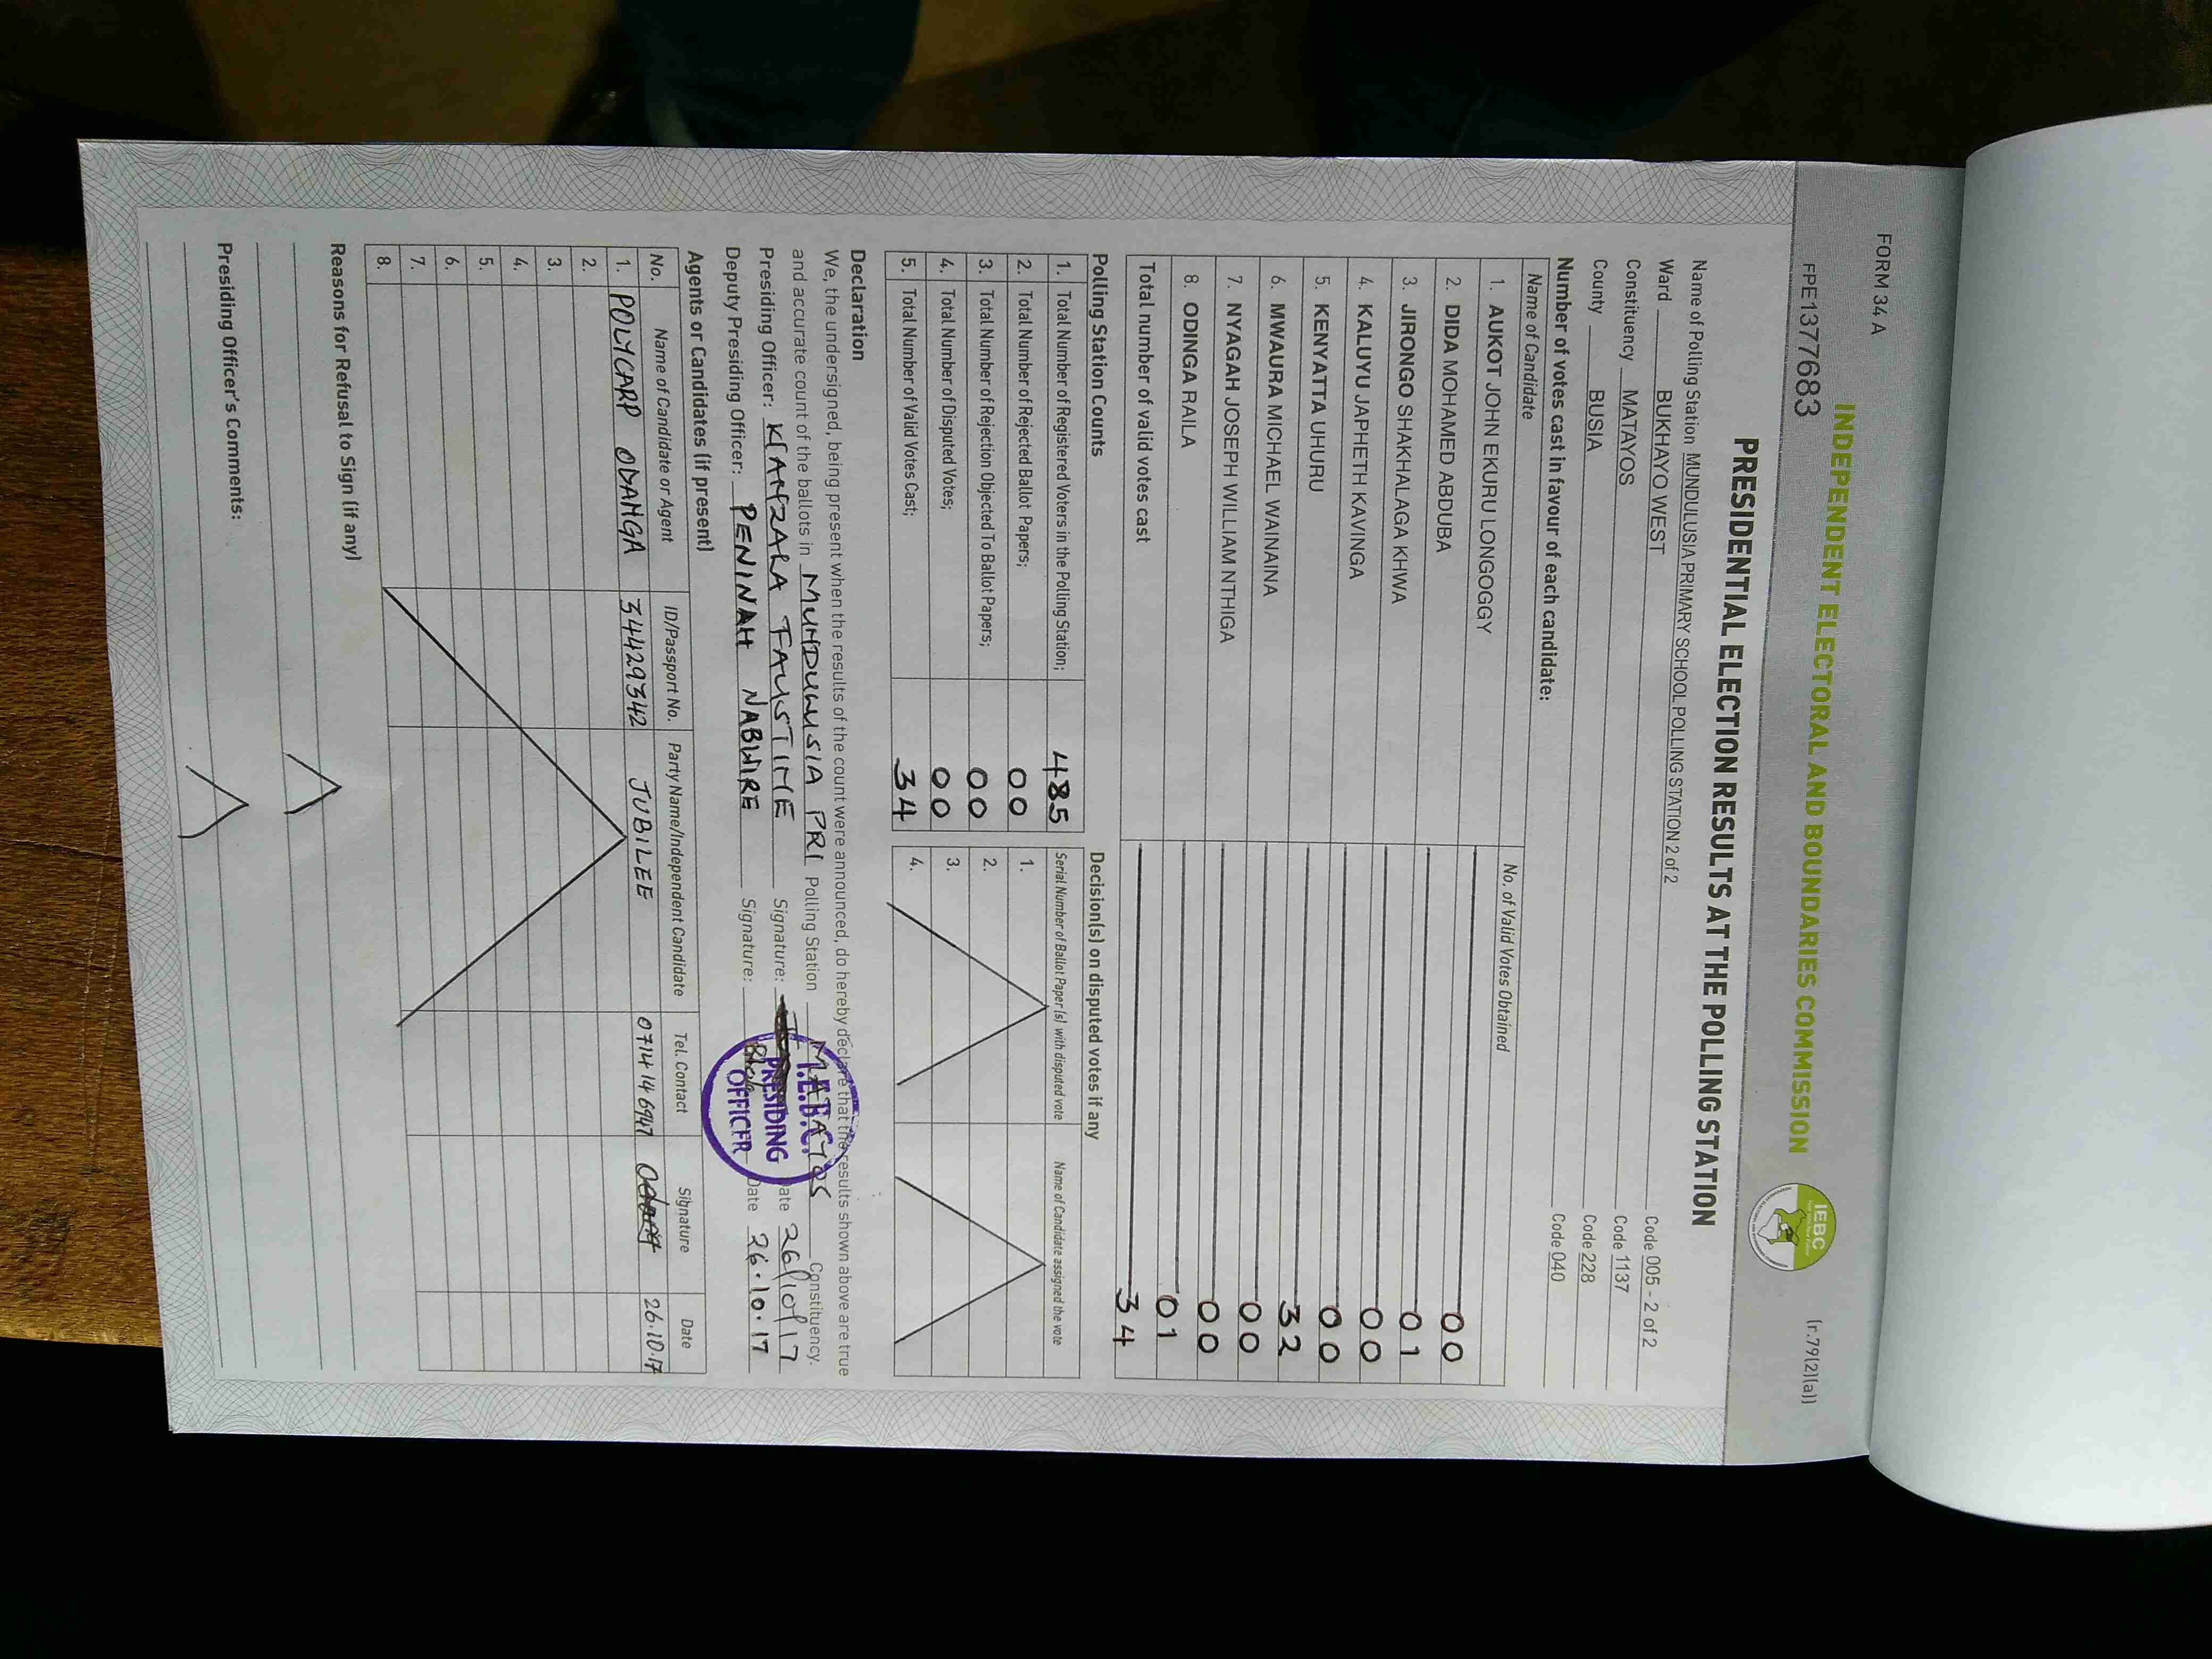 FORM 34 A
INDEPENDENT ELECTORAL AND BOUNDARIES COMMISSION
IEBC
(r.79(2)(a))
FPE1377683
PRESIDENTIAL ELECTION RESULTS AT THE POLLING STATION
Name of Polling Station MUNDULUSIA PRIMARY SCHOOL POLLING STATION 2 of 2 Code 005 - 2 of 2
Ward BUKHAYO WEST Code 1137
Constituency MATAYOS Code 228
County BUSIA Code 040
Number of votes cast in favour of each candidate:
Name of Candidate No. of Valid Votes Obtained
1. AUKOT JOHN EKURU LONGOGGY 00
2. DIDA MOHAMED ABDUBA 01
3. JIRONGO SHAKHALAGA KHWA 00
4. KALUYU JAPHETH KAVINGA 00
5. KENYATTA UHURU 32
6. MWAURA MICHAEL WAINAINA 00
7. NYAGAH JOSEPH WILLIAM NTHIGA 00
8. ODINGA RAILA 01
Total number of valid votes cast 34
Polling Station Counts
1. Total Number of Registered Voters in the Polling Station; 485
2. Total Number of Rejected Ballot Papers; 00
3. Total Number of Rejection Objected To Ballot Papers; 00
4. Total Number of Disputed Votes; 00
5. Total Number of Valid Votes Cast; 34
Decision(s) on disputed votes if any
Serial Number of Ballot Paper (s) with disputed vote Name of Candidate assigned the vote
1.
2.
3.
4.
Declaration
We, the undersigned, being present when the results of the count were announced, do hereby declare that the results shown above are true
and accurate count of the ballots in MUNDULUSIA PRI Polling Station MATAYOS Constituency.
Presiding Officer: KIANZARA FAUSTINE Signature: Date 26/10/17
Deputy Presiding Officer: PENINAH NABWIRE Signature: Date 26.10.17
I.E.B.C.
PRESIDING
OFFICER
Agents or Candidates (if present)
No. Name of Candidate or Agent ID/Passport No. Party Name/Independent Candidate Tel. Contact Signature Date
1. POLYCARP ODANGA 34429342 JUBILEE 0714146947 26.10.17
2.
3.
4.
5.
6.
7.
8.
Reasons for Refusal to Sign (if any)
Presiding Officer's Comments: